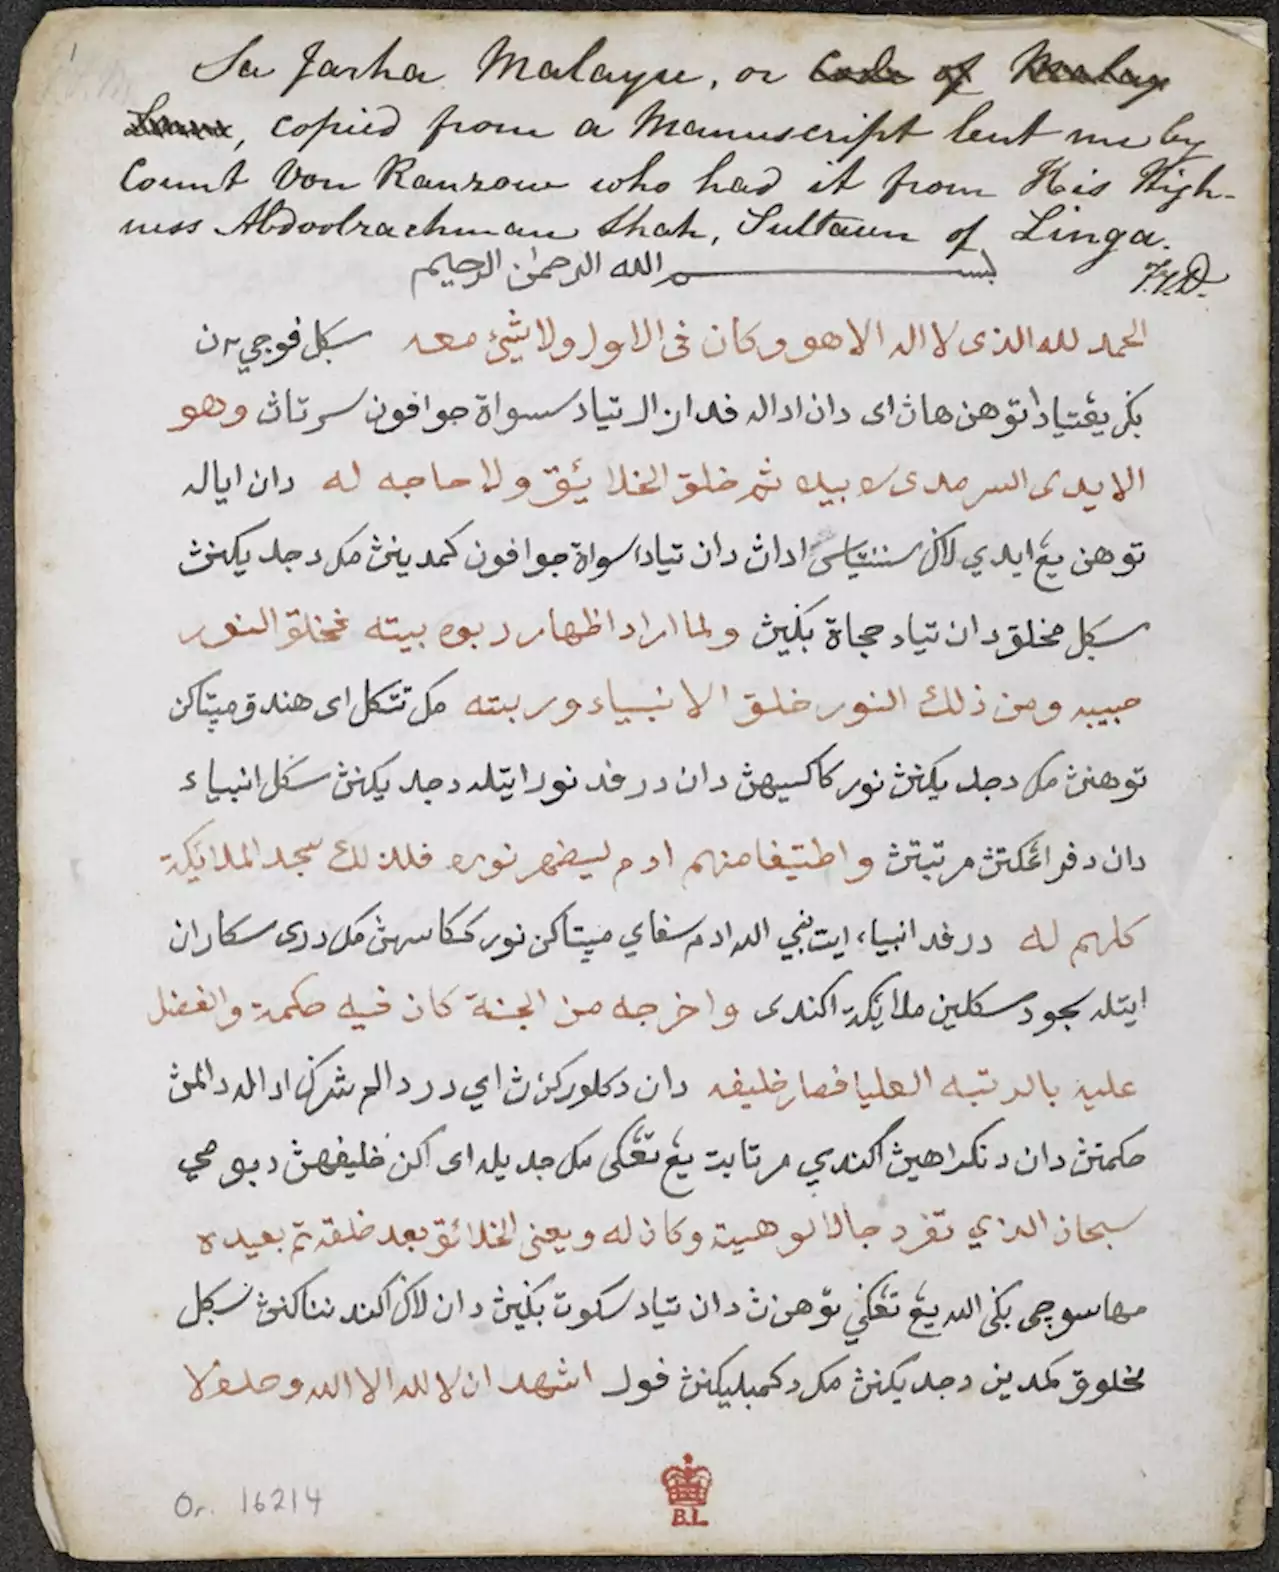 1
Sa Jarha Malayu, or Code of Malay
Laws, copied from a Manuscript lent me by
Count Von Ranzow who had it from His High-
ness Abdoolrachman Shah, Sultaun of Linga.
بسم الله الرحمن الرحيم
الحمد لله الذى لا اله الا هو وكان فى الاول ولا شيئ معه سكل فوجي
توهن هاث اى دان اداله تياد سسواة جوا فون سرتاث وهو
ثم خلق الخلائق ولا حاجه له دان اياله
توهن يڠ ابدي لاكى اداث دان تياد سواة جوا فون كمدينث مك دجديكنث
سكل مخلق دان تياد حجاة بكيث ولما اراد اظهار ربوه بيته فخلق النور
حبيبه ومن ذلك النور خلق الانبياء وربيته مك تتكل اى هندق مپتاكن
توهنث مك دجديكنث نور كاكسيهث دان درفد نور ايتله دجديكنث سكل انبياء
دان دفراڠكتث مرتبتث واطتيفا منهم ادم ليضهر نوره فلذلك سجد الملائكة
كلهم له درفد انبياء ايت نبي الله ادم سفاي مپتاكن نور ككاسهث مك درى سكاران
ايتله سجود سكلين ملائكة اكندى واخرجه من الجنة كان فيه حكمة والفضل
عليه بالرتبه العليا فصار خليفه دان دكلوركنث اي در دالم شركى اداله دالمث
حكمتث دان دنكراهيث اكندي مرتابت يڠ تڠكى مك جديله اى اكن خليفهث دبومي
سبحان الذي تفرد جالالوهية وكان له ويعنى الخلائق بعد خلقه ثم بعيده
مها سوچى بكى الله يڠ تڠكي توهنث دان تياد سكوت بكيث دان لاكى اكند سكل
مخلوق كمدين دجديكنث مك دكمبليكنث فول اشهد ان لا لله الا الله وحده لا
Or. 16214
B.L.